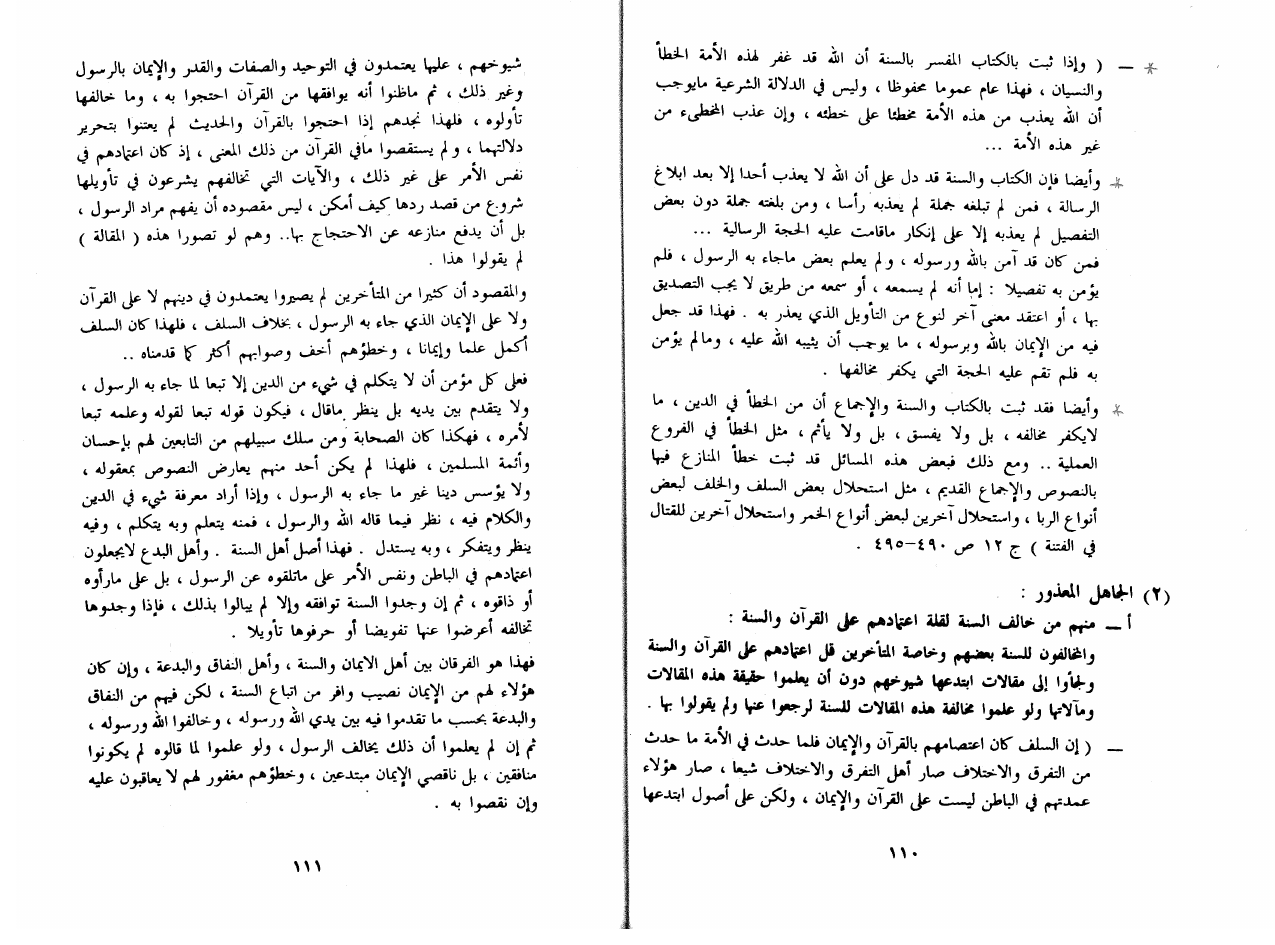 * — ( وإذا ثبت بالكتاب المفسر بالسنة أن الله قد غفر لهذه الأمة الخطأ
والنسيان ، فهذا عام عموما محفوظا ، وليس في الدلالة الشرعية مايوجب
أن الله يعذب من هذه الأمة مخطئا على خطئه ، وإن عذب المخطىء من
غير هذه الأمة ...
* وأيضا فإن الكتاب والسنة قد دل على أن الله لا يعذب أحدا إلا بعد ابلاغ
الرسالة ، فمن لم تبلغه جملة لم يعذبه رأسا ، ومن بلغته جملة دون بعض
التفصيل لم يعذبه إلا على إنكار ماقامت عليه الحجة الرسالية ...
فمن كان قد آمن بالله ورسوله ، ولم يعلم بعض ماجاء به الرسول ، فلم
يؤمن به تفصيلا : إما أنه لم يسمعه ، أو سمعه من طريق لا يجب التصديق
بها ، أو اعتقد معنى آخر لنوع من التأويل الذي يعذر به . فهذا قد جعل
فيه من الإيمان بالله وبرسوله ، ما يوجب أن يثيبه الله عليه ، ومالم يؤمن
به فلم تقم عليه الحجة التي يكفر مخالفها .
* وأيضا فقد ثبت بالكتاب والسنة والإجماع أن من الخطأ في الدين ، ما
لايكفر مخالفه ، بل ولا يفسق ، بل ولا يأثم ، مثل الخطأ في الفروع
العملية .. ومع ذلك فبعض هذه المسائل قد ثبت خطأ المنازع فيها
بالنصوص والإجماع القديم ، مثل استحلال بعض السلف والخلف لبعض
أنواع الربا ، واستحلال آخرين لبعض أنواع الخمر واستحلال آخرين للقتال
في الفتنة ) ج ١٢ ص ٤٩٠–٤٩٥ .
(٢) الجاهل المعذور :
أ — منهم من خالف السنة لقلة اعتمادهم على القرآن والسنة :
والمخالفون للسنة بعضهم وخاصة المتأخرين قل اعتمادهم على القرآن والسنة
ولجأوا إلى مقالات ابتدعها شيوخهم دون أن يعلموا حقيقة هذه المقالات
ومآلاتها ولو علموا مخالفة هذه المقالات للسنة لرجعوا عنها ولم يقولوا بها .
— ( إن السلف كان اعتصامهم بالقرآن والإيمان فلما حدث في الأمة ما حدث
من التفرق والاختلاف صار أهل التفرق والاختلاف شيعا ، صار هؤلاء
عمدتهم في الباطن ليست على القرآن والإيمان ، ولكن على أصول ابتدعها
١١٠
شيوخهم ، عليها يعتمدون في التوحيد والصفات والقدر والإيمان بالرسول
وغير ذلك ، ثم ماظنوا أنه يوافقها من القرآن احتجوا به ، وما خالفها
تأولوه ، فلهذا نجدهم إذا احتجوا بالقرآن والحديث لم يعتنوا بتحرير
دلالتهما ، ولم يستقصوا مافي القرآن من ذلك المعنى ، إذ كان اعتمادهم في
نفس الأمر على غير ذلك ، والآيات التي تخالفهم يشرعون في تأويلها
شروع من قصد ردها كيف أمكن ، ليس مقصوده أن يفهم مراد الرسول ،
بل أن يدفع منازعه عن الاحتجاج بها.. وهم لو تصورا هذه ( المقالة )
لم يقولوا هذا .
والمقصود أن كثيرا من المتأخرين لم يصيروا يعتمدون في دينهم لا على القرآن
ولا على الإيمان الذي جاء به الرسول ، بخلاف السلف ، فلهذا كان السلف
أكمل علما وإيمانا ، وخطؤهم أخف وصوابهم أكثر كما قدمناه ..
فعلى كل مؤمن أن لا يتكلم في شيء من الدين إلا تبعا لما جاء به الرسول ،
ولا يتقدم بين يديه بل ينظر ماقال ، فيكون قوله تبعا لقوله وعلمه تبعا
لأمره ، فهكذا كان الصحابة ومن سلك سبيلهم من التابعين لهم بإحسان
وأئمة المسلمين ، فلهذا لم يكن أحد منهم يعارض النصوص بمعقوله ،
ولا يؤسس دينا غير ما جاء به الرسول ، وإذا أراد معرفة شيء في الدين
والكلام فيه ، نظر فيما قاله الله والرسول ، فمنه يتعلم وبه يتكلم ، وفيه
ينظر ويتفكر ، وبه يستدل . فهذا أصل أهل السنة . وأهل البدع لايجعلون
اعتمادهم في الباطن ونفس الأمر على ماتلقوه عن الرسول ، بل على مارأوه
أو ذاقوه ، ثم إن وجدوا السنة توافقه وإلا لم يبالوا بذلك ، فإذا وجدوها
تخالفه أعرضوا عنها تفويضا أو حرفوها تأويلا .
فهذا هو الفرقان بين أهل الايمان والسنة ، وأهل النفاق والبدعة ، وإن كان
هؤلاء لهم من الإيمان نصيب وافر من اتباع السنة ، لكن فيهم من النفاق
والبدعة بحسب ما تقدموا فيه بين يدي الله ورسوله ، وخالفوا الله ورسوله ،
ثم إن لم يعلموا أن ذلك يخالف الرسول ، ولو علموا لما قالوه لم يكونوا
منافقين ، بل ناقصي الإيمان مبتدعين ، وخطؤهم مغفور لهم لا يعاقبون عليه
وإن نقصوا به .
١١١